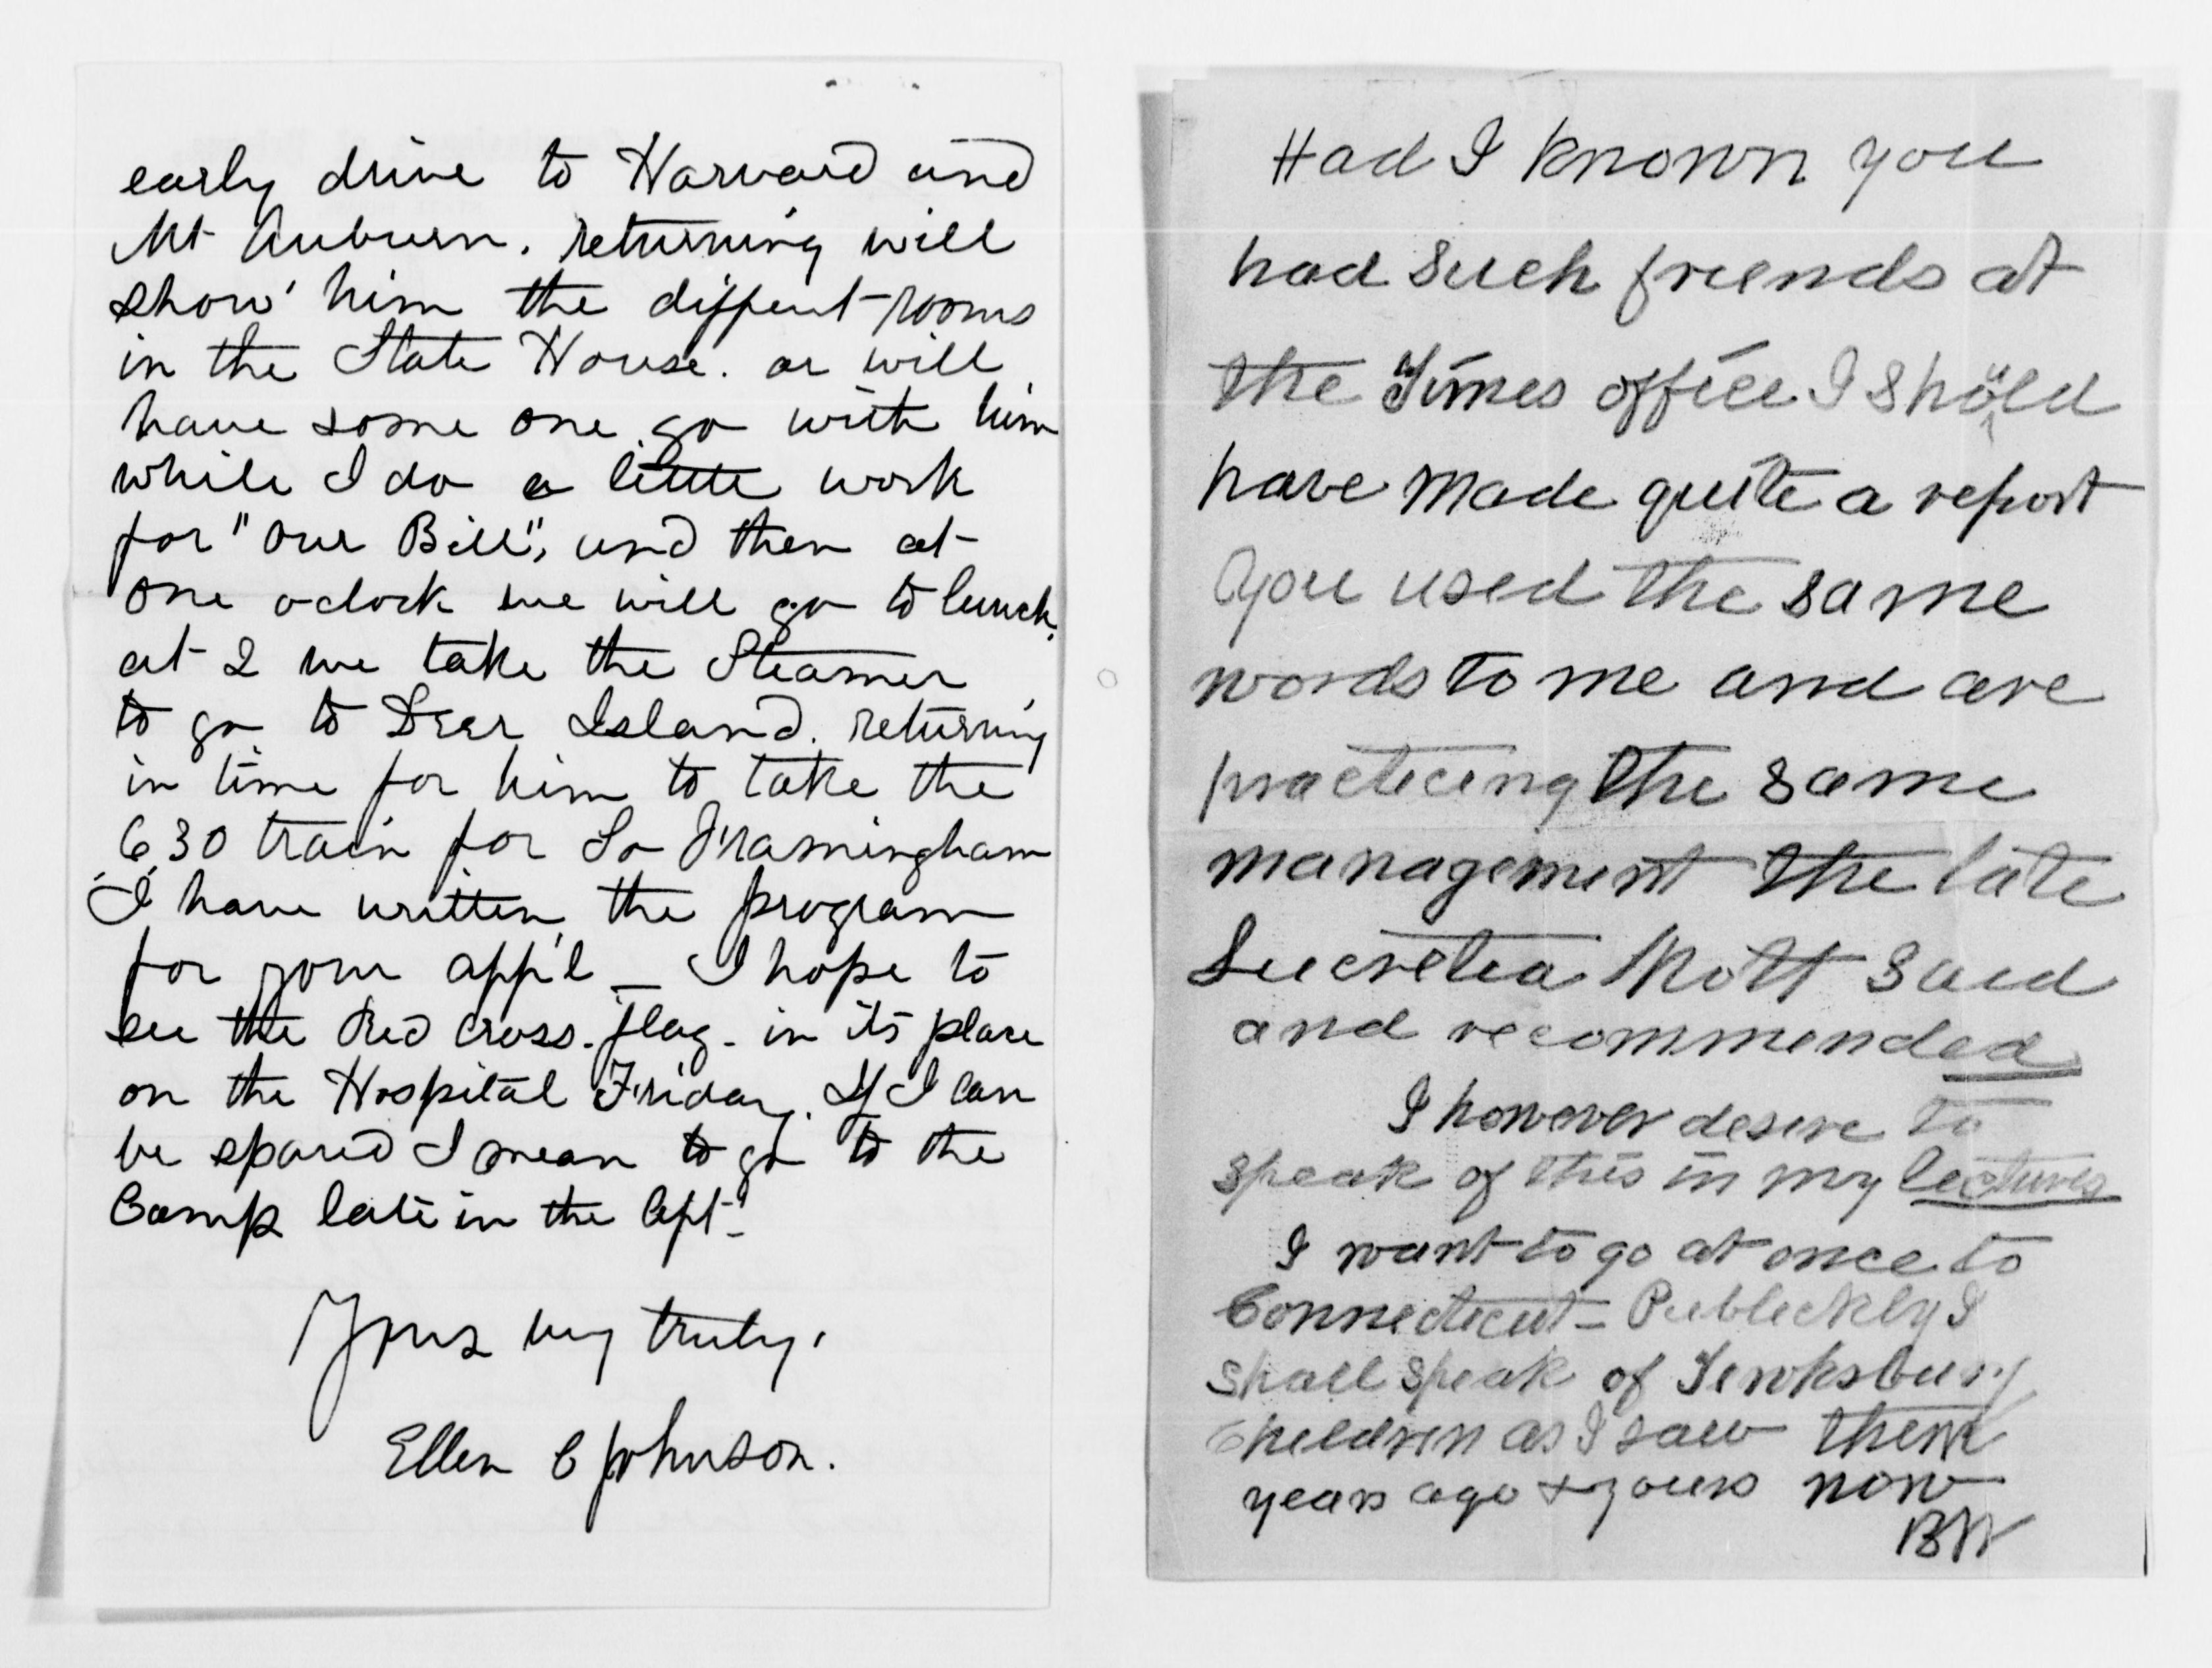 early drive to Harvard and
Mt Auburn. returning will
show him the diffent rooms
in the State House. or will
have some one go with him
while I do a little work
for "our Bill", and then at
one o-clock we will go to lunch.
at 2 we take the Steamer
to go to Deer Island. returning
in time for him to take the
6,30 train for So Framingham
I have written the program
for your app'l _ I hope to
see the Red Cross. flag - in its place
on the Hospital Friday. If I can
be spared I mean to go to the
Camp late in the
Yours very truly,
Ellen C Johnson.
Had I known you
had such friends at
the Times office I should
have made quite a report
You used the same
words to me and are
practicing the same
management the late
Lucretia Mott said
and recommended
I however desire to
speak of this in my lectures
I want to go at once to
Connecticut - Publickly I
shall speak of Tewksbury
Children as I saw them
years ago & yours now
BW